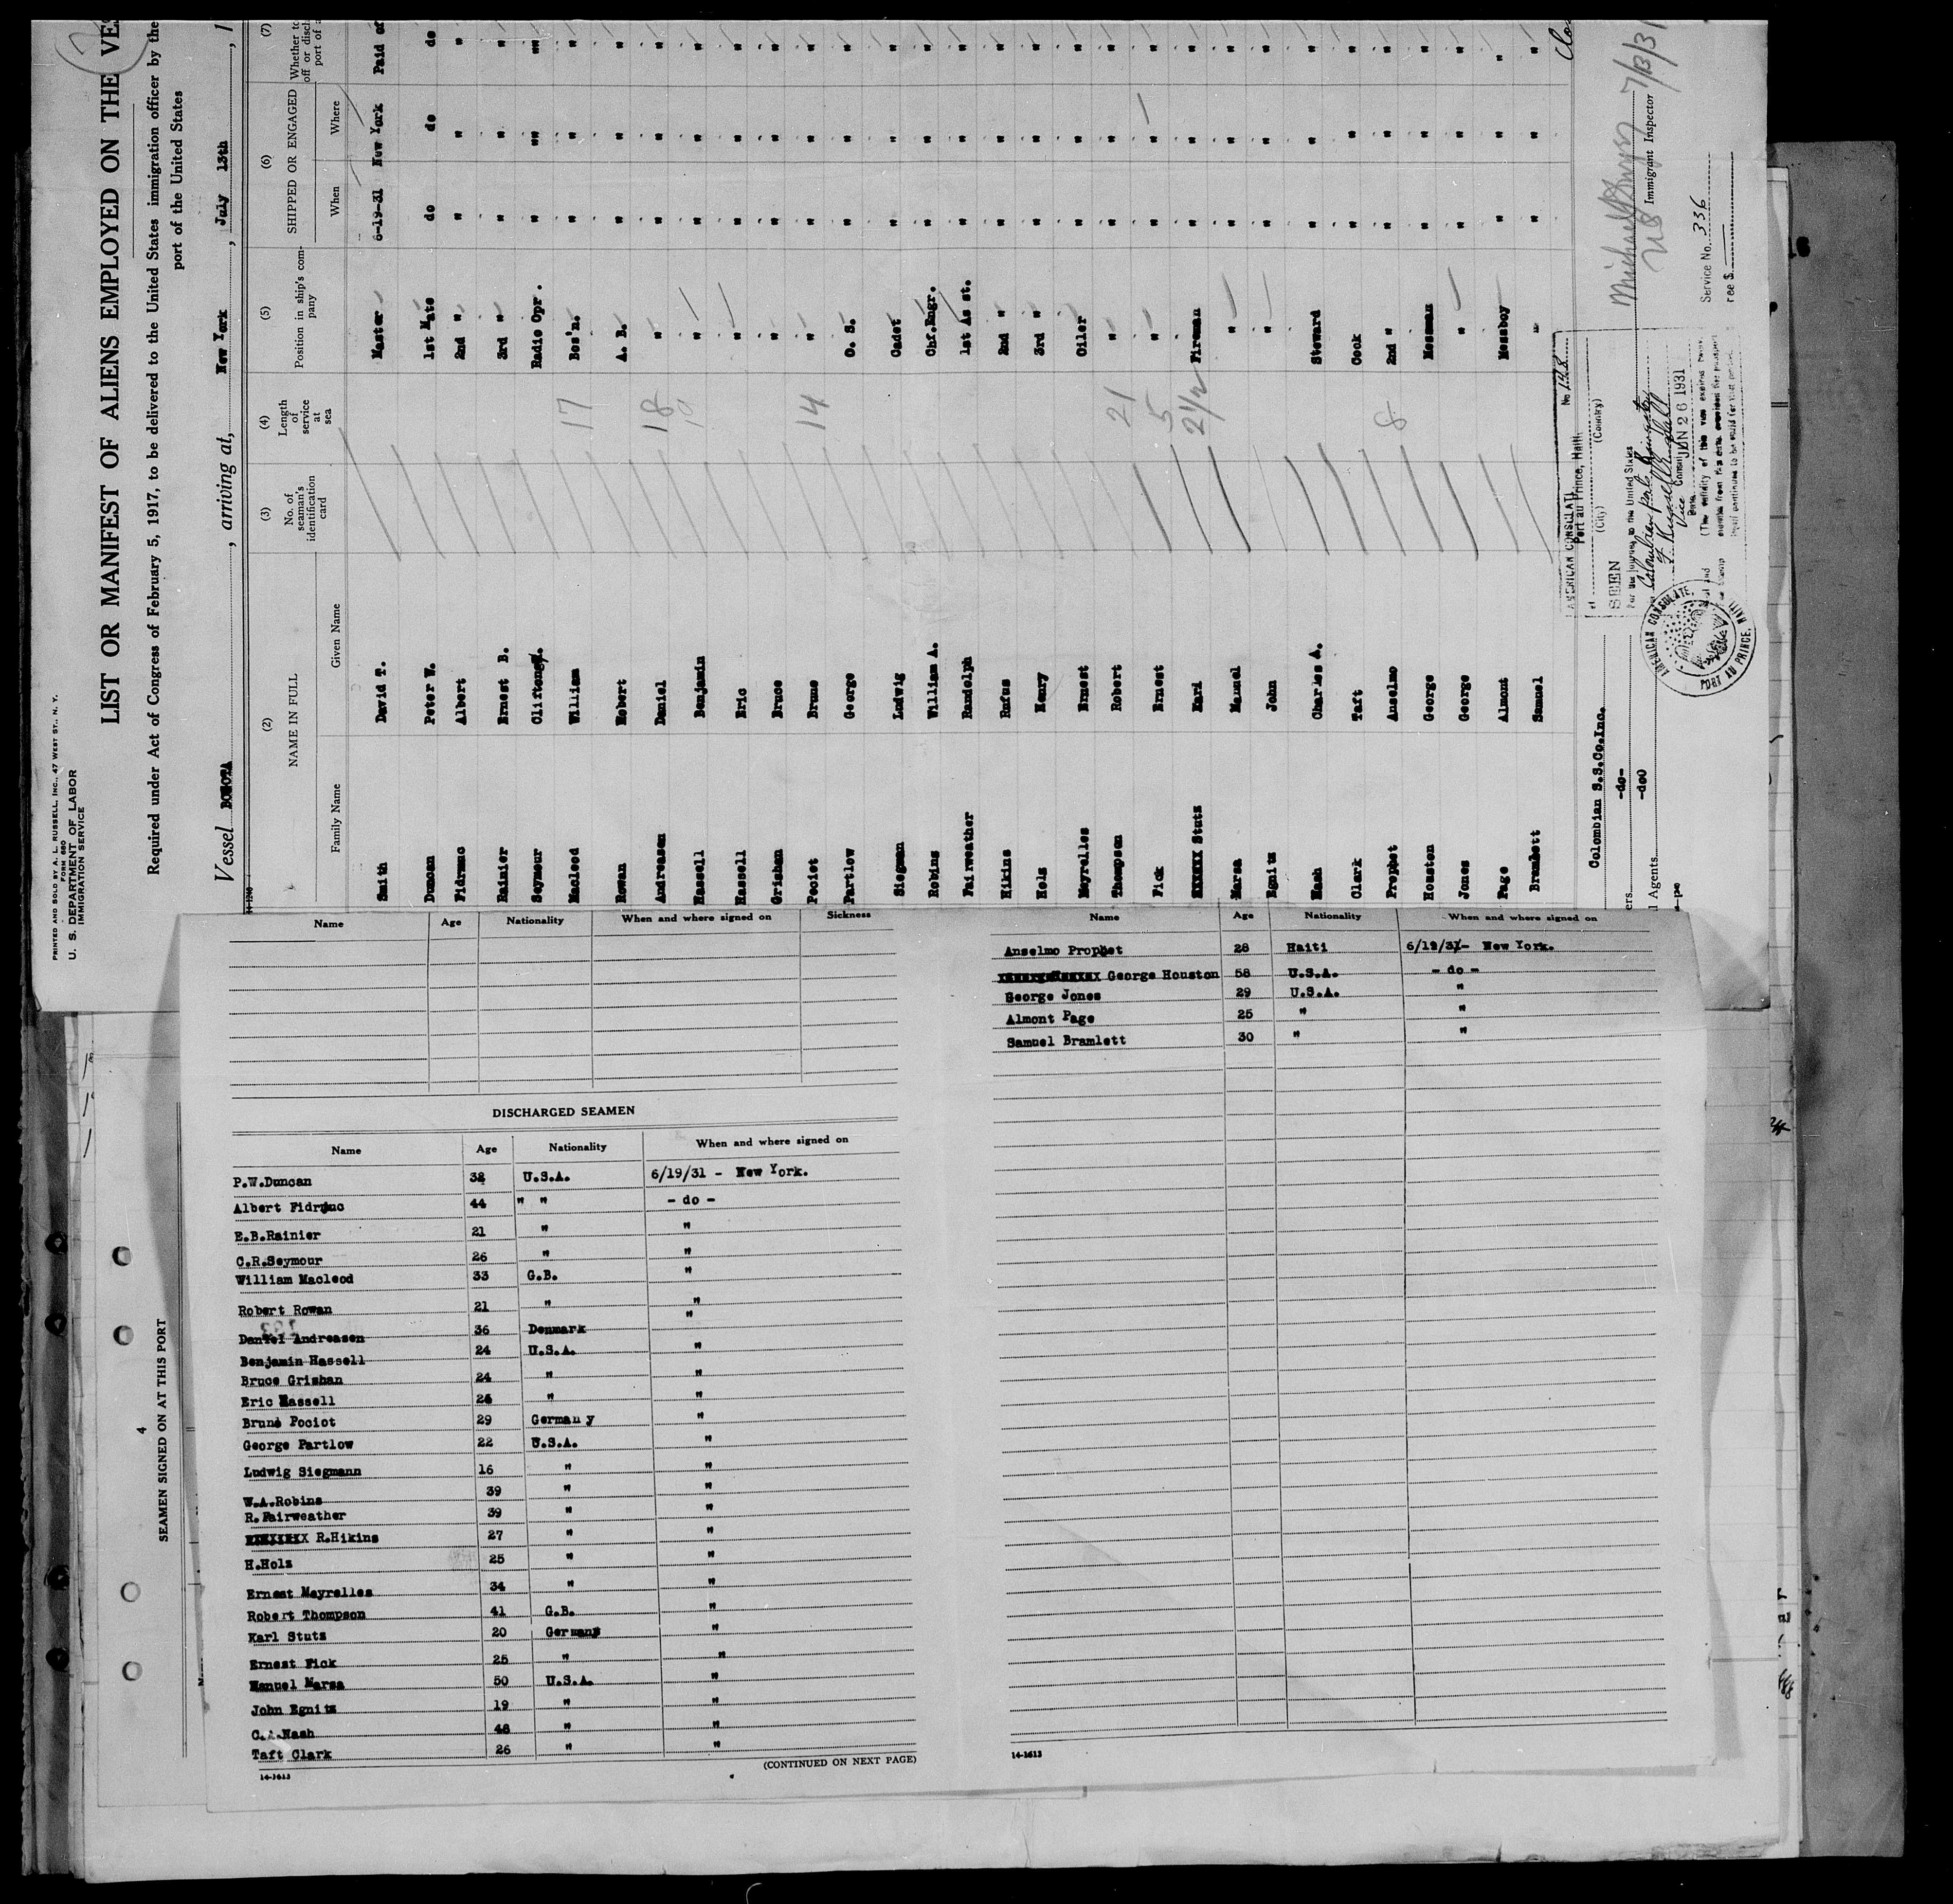 PRINTED AND SOLD BY A. L. RUSSELL, INC., 47 WEST ST., N. Y.
FORM 680
U. S. DEPARTMENT OF LABOR
IMMIGRATION SERVICE
LIST OR MANIFEST OF ALIENS EMPLOYED ON THE VES
Required under Act of Congress of February 5, 1917, to be delivered to the United States immigration officer by the
port of the United States
Vessel BOGOTA, arriving at, New York, July 13th, 1
(2) (3) (4) (5) (6) (7)
NAME IN FULL No. of seaman's identification card Length of service at sea Position in ship's company SHIPPED OR ENGAGED Whether to off or disch port of a
Family Name Given Name When Where
Smith David T. Master 6-19-31 New York Paid of
Duncan Peter W. 1st Mate do do do
Fidrmuc Albert 2nd " " " "
Rainier Ernest B. 3rd " " " "
Seymour Clifton Radio Opr. " "" ""
Macleod William 17 Bos'n. " " "
Rowan Robert A. B. " " "
Andreasen Daniel 18 " " " "
Hassell Benjamin 10 " " " "
Hassell Eric " " " "
Grishan Bruce " " " "
Pociot Bruno 14 " " " "
Partlow George O. S. " " "
Siegman Ludwig Cadet " " "
Robins William A. Chf.Engr. " " "
Fairweather Randolph 1st As st. " " "
Hikins Rufus 2nd " " " "
Holz Henry 3rd " " " "
Mayrelles Ernest Oiler " " "
Thompson Robert 21 " " " "
Fick Ernest 5 " " " "
Stutz Karl 2 1/2 Fireman " " "
Marsa Manuel " " " "
Egnitz John " " " "
Nash Charles A. Steward " " "
Clark Taft Cook " " "
Prophet Anselmo 8 2nd " " " "
Houston George Messman " " "
Jones George " " " "
Page Almont Messboy " " "
Bramlett Samuel " " " "
Colombian S.S.Co.Inc.
-do-
-do0
ers
l Agents
AMERICAN CONSULATE
No 148
Port au Prince, Haiti
(City) (Country)
SEEN
For the journey to the United States
Vice Consul
JUN 26 1931
Date
(The validity of this visa expires
AMERICAN CONSULATE
PORT AU PRINCE, HAITI
Service No. 336
Fee $
Immigrant Inspector
7/13/31
Name Age Nationality When and where signed on Sickness
DISCHARGED SEAMEN
Name Age Nationality When and where signed on
P.W.Duncan 32 U.S.A. 6/19/31 - New York.
Albert Fidrmuc 44 " " - do -
E.B.Rainier 21 " "
C.R.Seymour 26 " "
William Macleod 33 G.B. "
Robert Rowan 21 " "
Daniel Andreasen 36 Denmark "
Benjamin Hassell 24 U.S.A. "
Bruce Grishan 24 " "
Eric Hassell 24 " "
Bruno Pociot 29 Germany "
George Partlow 22 U.S.A. "
Ludwig Siegmann 16 " "
W.A.Robins 39 " "
R.Fairweather 39 " "
R.Hikins 27 " "
H.Holz 25 " "
Ernest Mayrelles 34 " "
Robert Thompson 41 G.B. "
Karl Stutz 20 Germany "
Ernest Fick 25 " "
Manuel Marsa 50 U.S.A. "
John Egnitz 19 " "
C.A.Nash 48 " "
Taft Clark 26 " "
(CONTINUED ON NEXT PAGE)
14-1613
Name Age Nationality When and where signed on
Anselmo Prophet 28 Haiti 6/19/31- New York.
George Houston 58 U.S.A. - do -
George Jones 29 U.S.A. "
Almont Page 25 " "
Samuel Bramlett 30 " "
14-1613
4
SEAMEN SIGNED ON AT THIS PORT